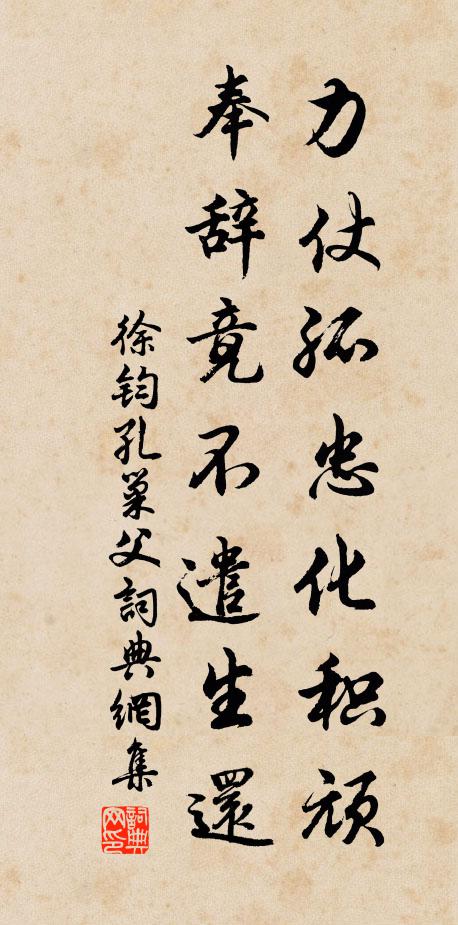 力仗孤忠化积顽
奉辞竟不遣生還
徐钧孔巢父詞典網集
詞典网印